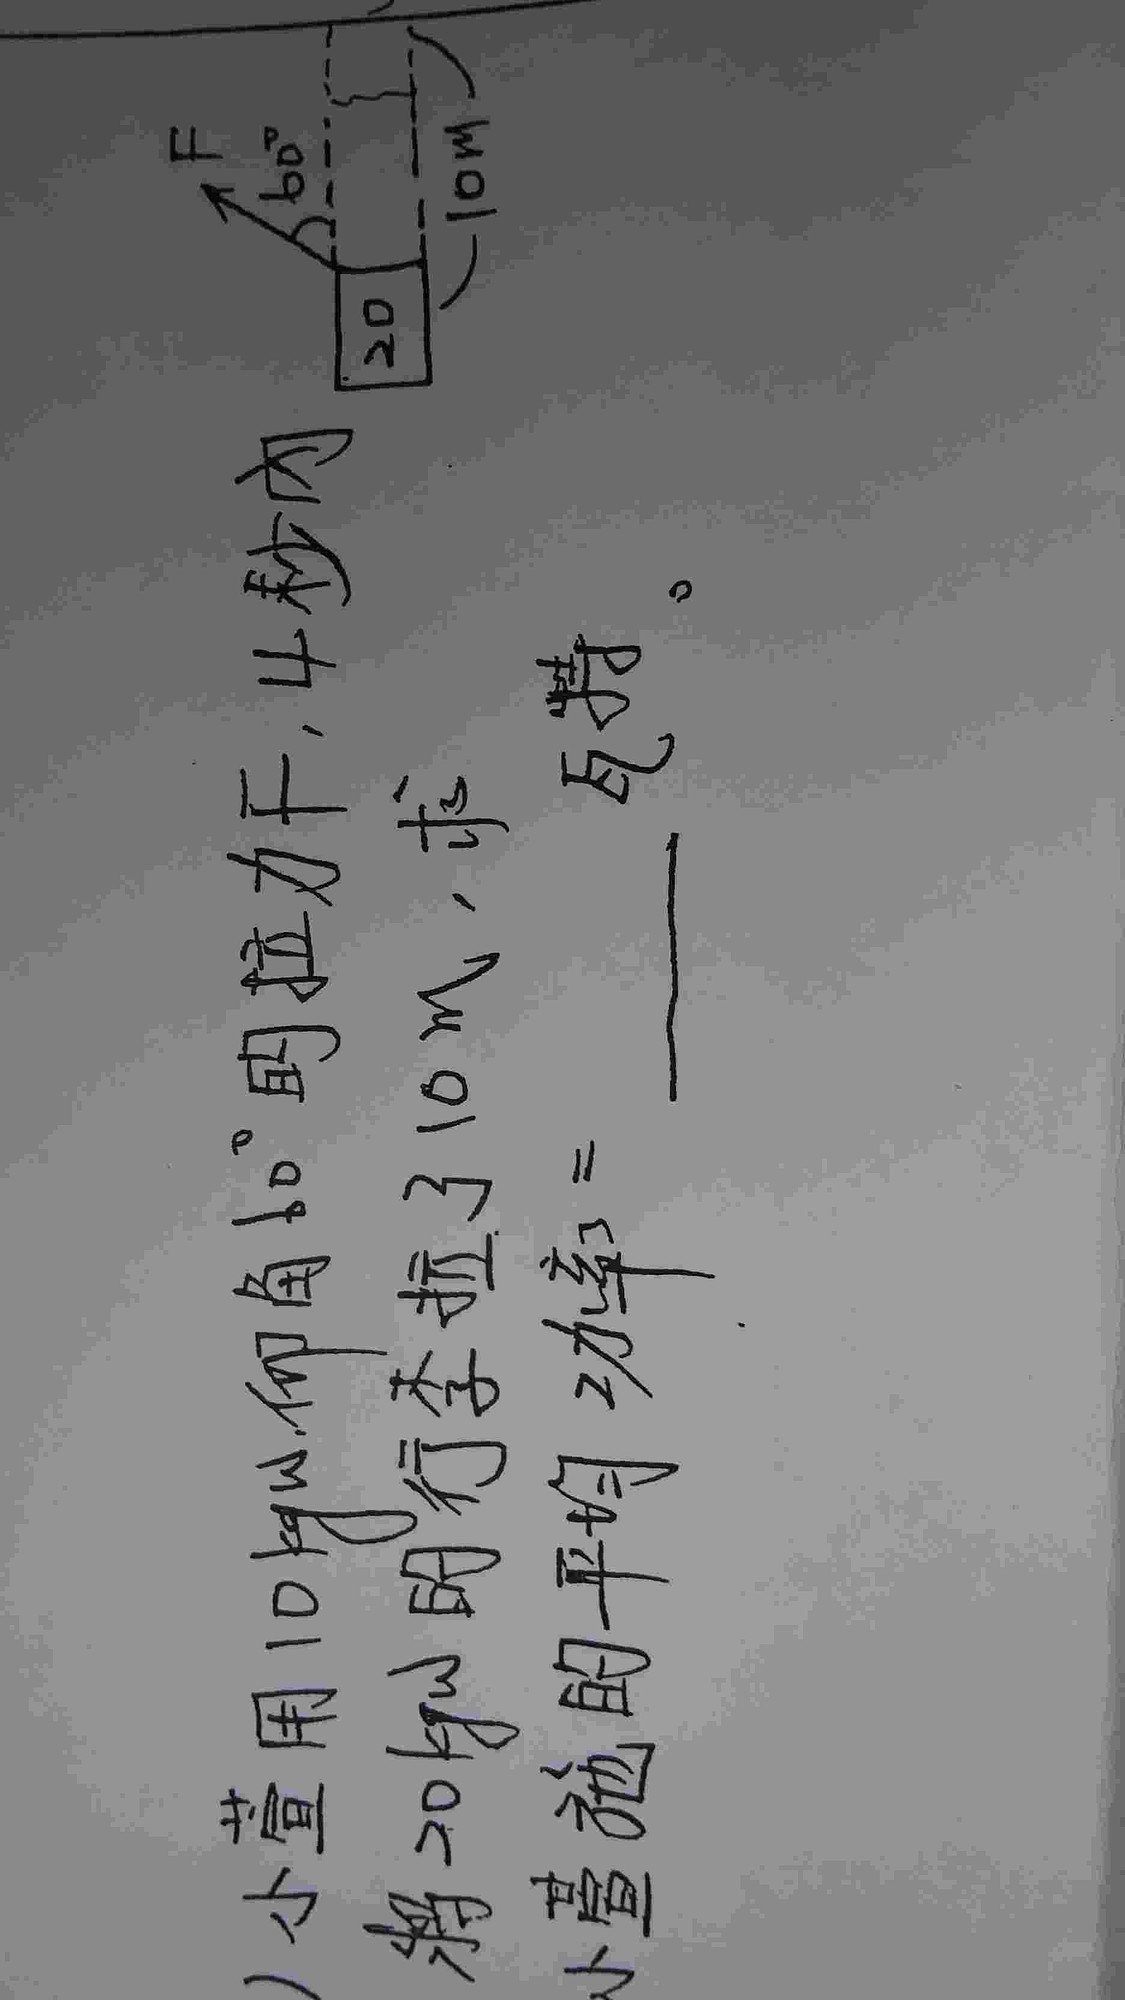 ) 小萱用10kgw.仰角60°的拉力下,4秒內
將20kgw的行李拉了10m,求
小萱施的平均功率= ______ 瓦特。
F
60°
20
10m